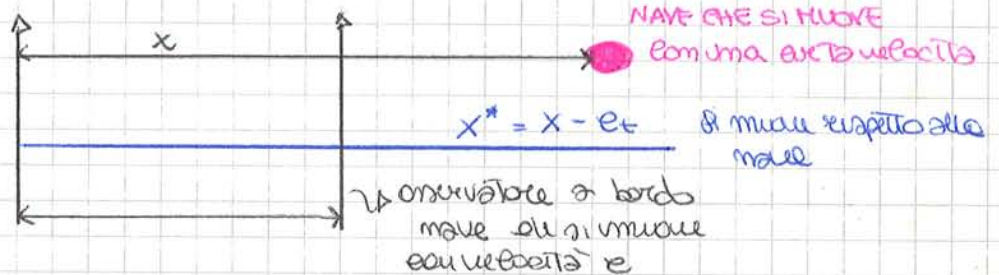 NAVE CHE SI MUOVE
con una certa velocità
x
x* = x - ct
si muove rispetto alla
nave
osservatore a bordo
nave che si muove
con velocità c